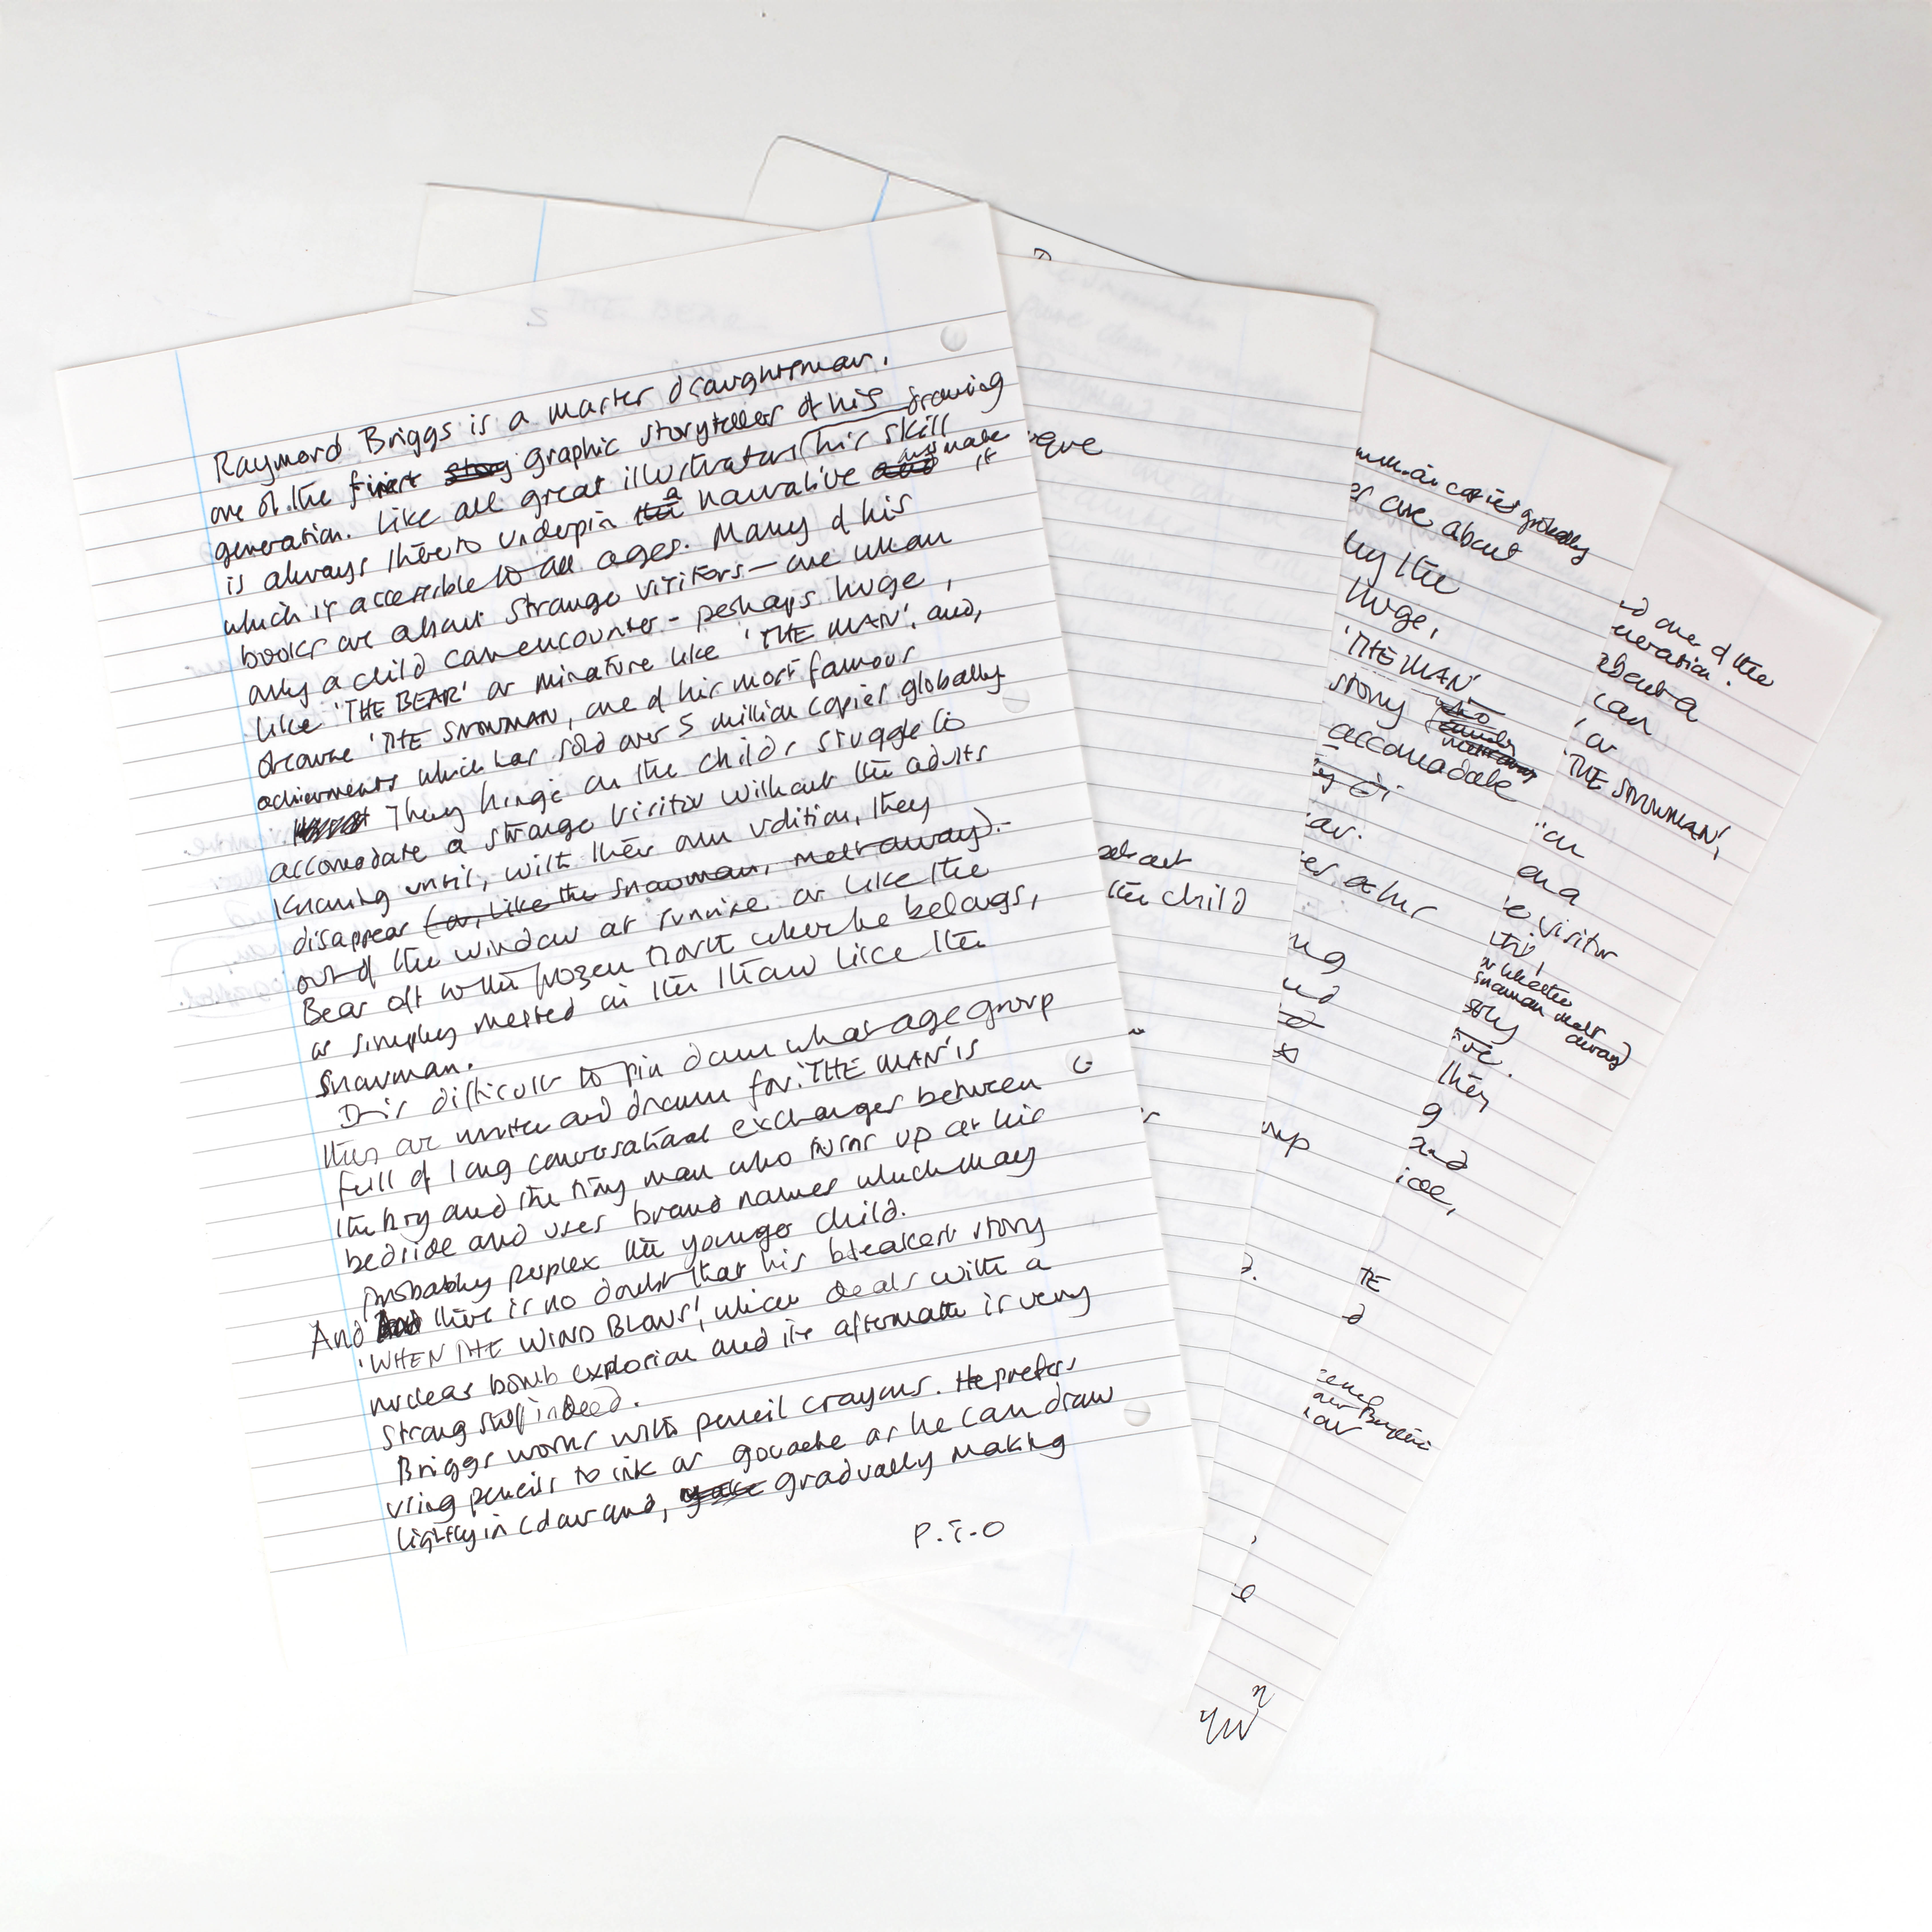 Raymond Briggs is a master draughtsman,
one of the finest story graphic storyteller of his
generation. Like all great illustrators his drawing skill
is always there to underpin the a narrative and and make it
which is accessible to all ages. Many of his
books are about strange visitors - one whom
only a child can encounter - perhaps huge,
like 'THE BEAR' or minature like 'THE MAN', and,
ofcourse 'THE SNOWMAN, one of his most famous
achievments which has sold over 5 million copies globally
They hinge on the childs stuggle to
accomodate a strange visitor without the adults
knowing until, with their own volition, they
disappear (or, like the snowman, melt away).-
out of the window at sunrise or like the
Bear off to the frozen north where he belongs,
or simply melted in the thaw like the
snowman.
It is difficult to pin down what age group
they are written and drawn for. 'THE MAN' is
full of long conversational exchanges between
the boy and the tiny man who turns up at his
bedside and uses brand names which may
probabley perplex the younger child.
And there is no doubt that his bleakest story
'WHEN THE WIND BLOWS', which deals with a
nuclear bomb explosion and its aftermath is very
strong stuff indeed.
Briggs works with pencil crayons. He prefers
using pencils to ink or gouache as he can draw
lightly in colour and, make gradually making
P.T.O
S
THE BEAR
eque
out
the child
copies globally
are about
by the
huge,
'THE MAN'
story
accomadate
ng
one of the
about a
can
or
'THE SNOWMAN',
on a
visitor
or like the
snowman melt
away)
story
they
g
and